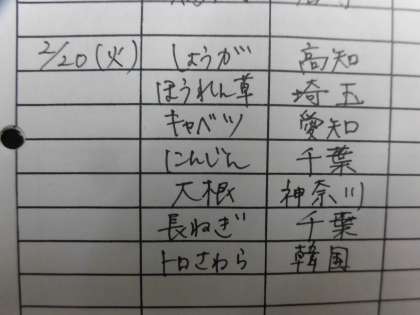 2/20(火) しょうが 高知
ほうれん草 埼玉
キャベツ 愛知
にんじん 千葉
大根 神奈川
長ねぎ 千葉
トロさわら 韓国